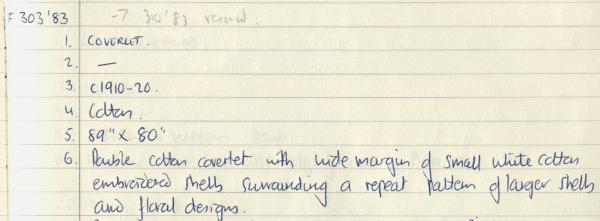 F 303'83 -7 310'83 reserved.
1. COVERLET.
2. —
3. c1910-20.
4. Cotton.
5. 89" x 80"
6. Double cotton coverlet with wide margin of small white cotton
embroidered shells surrounding a repeat pattern of larger shells
and floral designs.